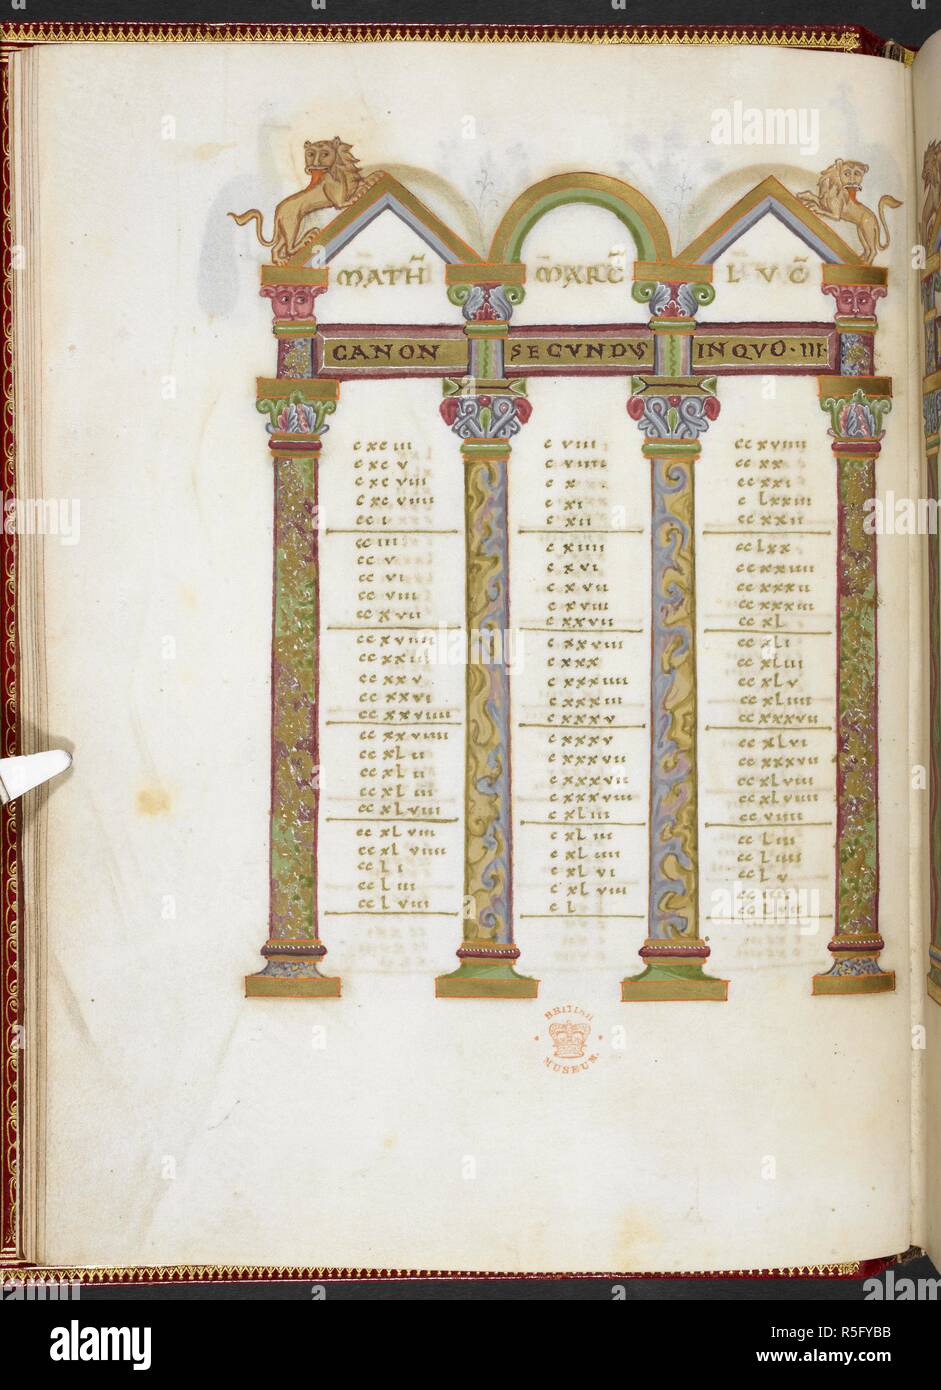 MATH̄ MARC̄ L V C̄
CANON SECVNDVS IN QVO · III ·
c xc iii c viii cc xviiii
c xc v c viiii cc xx
c xc viii c x cc xxi
c xc viiii c xi c Lxxiii
cc i c xii cc xxii
cc iii c xiiii cc Lxx
cc v c xvi cc xxiiii
cc vi c xvii cc xxxii
cc viii c xviii cc xxxiii
cc xvii c xxvii cc xL
cc xviiii c xxviii cc xLi
cc xxiii c xxx cc xLiii
cc xxv c xxxiiii cc xLv
cc xxvi c xxxiii cc xLiiii
cc xxviiii c xxxv cc xxxvii
cc xxviiii c xxxv cc xLvi
cc xL ii c xxxvii cc xxxvii
cc xL ii c xxxvii cc xLviii
cc xL iii c xxxviii cc xLviiii
cc xLviii c xLiii cc viiii
cc xL viii c xL iii cc Liii
cc xL viiii c xL iiii cc Liiii
cc L i c xL vi cc L v
cc L iii c xL viii cc iiii
cc L viii c L cc L vii
BRITISH
MUSEUM
alamy
Image ID: R5FYBB
www.alamy.com